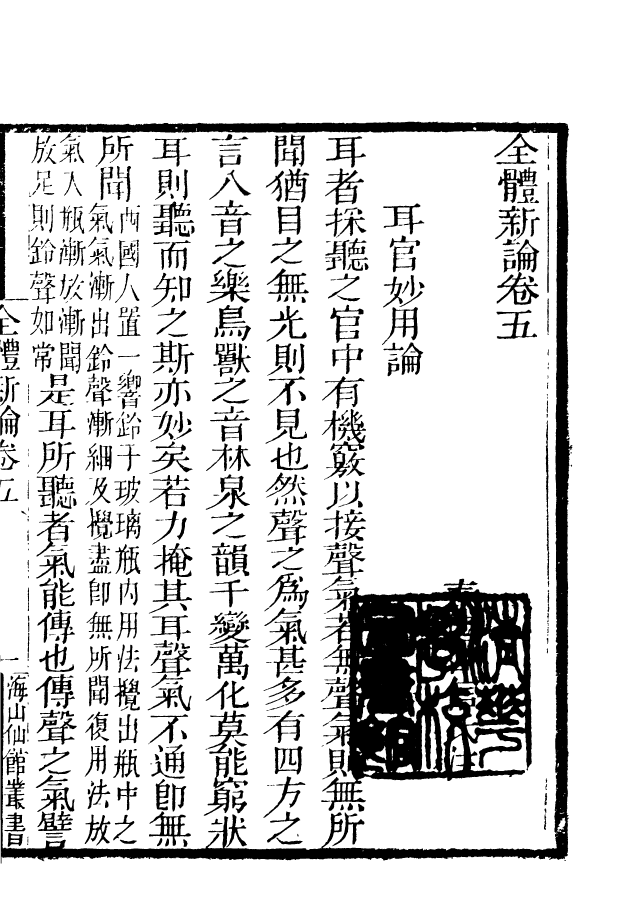 全體新論卷五
耳官妙用論
耳者探聽之官中有機竅以接聲氣若無聲氣則無所
聞猶目之無光則不見也然聲之為氣甚多有四方之
言八音之樂鳥獸之音林泉之韻千變萬化莫能窮狀
耳則聽而知之斯亦妙矣若力掩其耳聲氣不通即無
所聞
西國人置一響鈴于玻璃瓶內用法攪出瓶中之
氣氣漸出鈴聲漸細及攪盡即無所聞復用法放
氣入瓶漸放漸聞
放足則鈴聲如常
是耳所聽者氣能傳也傳聲之氣譬
全體新論卷五
一
海山仙館叢書